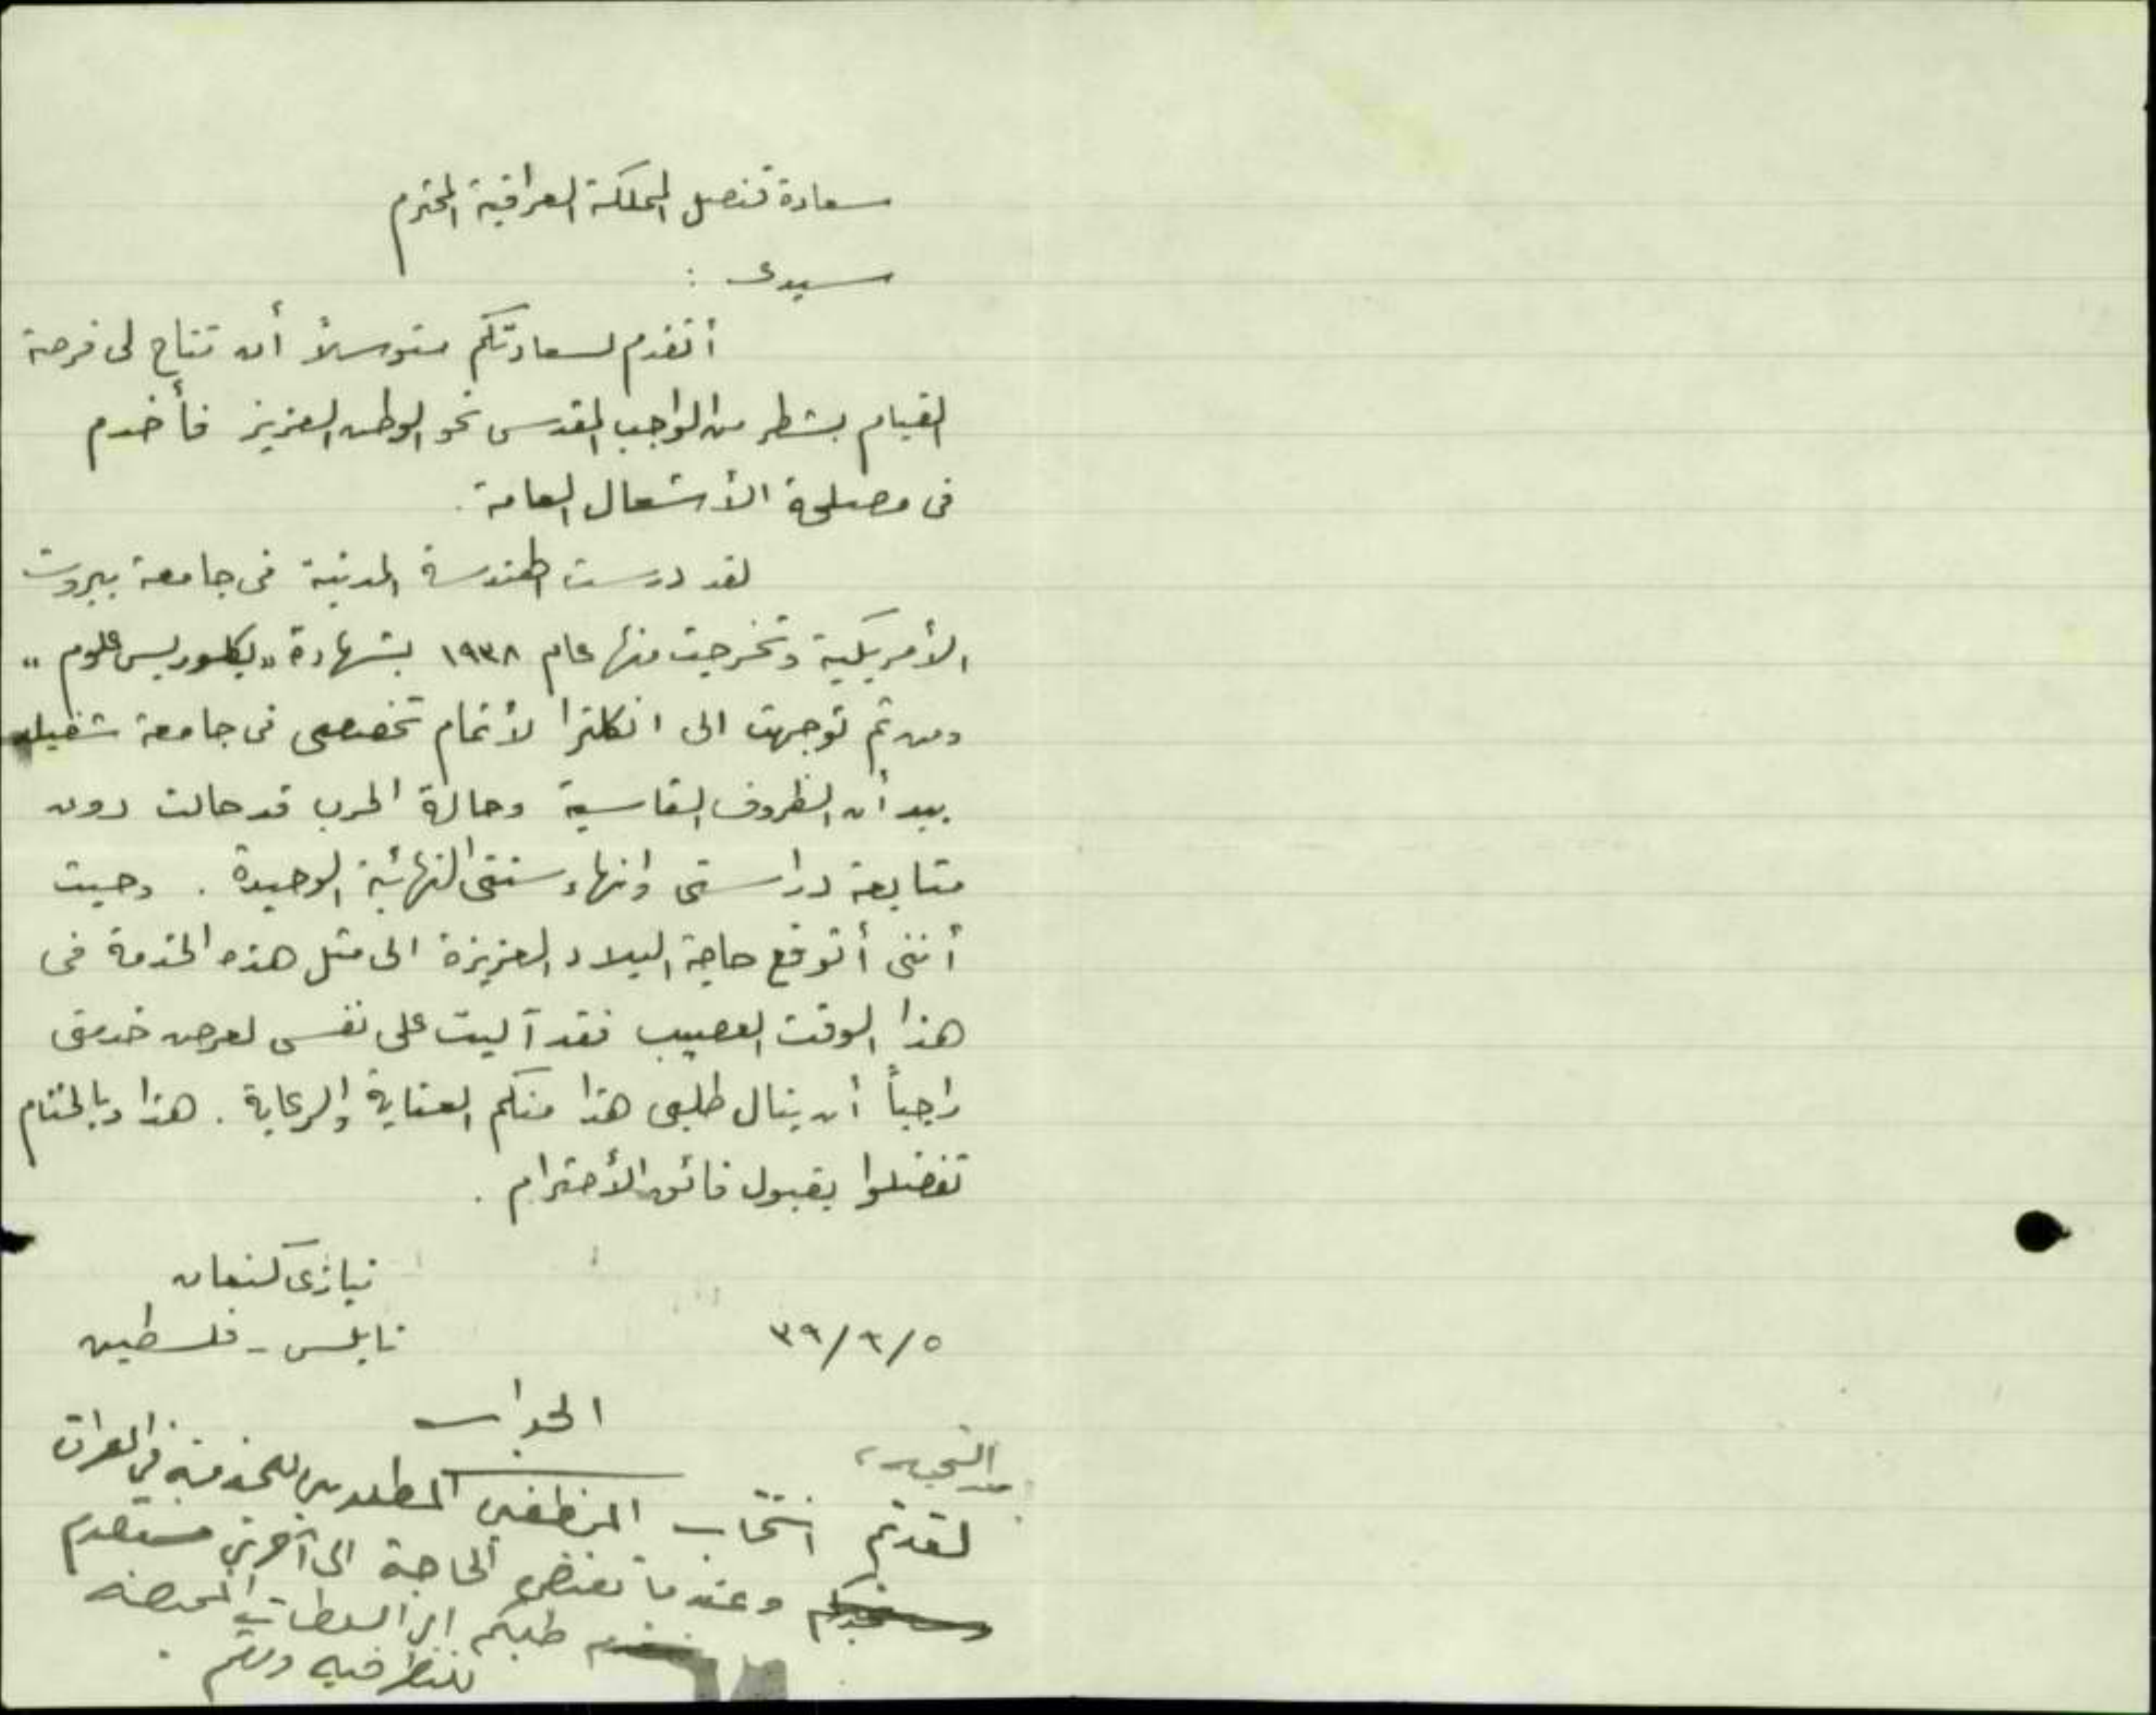 سعادة قنصل المملكة العراقية المحترم
سيدى :
أتقدم لسعادتكم متوسلاً أن تتاح لى فرصة
القيام بشطر من الواجب المقدس نحو الوطن العزيز فأخدم
فى مصلحة الأشغال العامة .
لقد درست الهندسة المدنية فى جامعة بيروت
الأمريكية وتخرجت منها عام ١٩٣٨ بشهادة "بكلوريس علوم"
ومن ثم توجهت الى انكلترا لأتمام تخصصى فى جامعة شفيلد
بيد أن الظروف القاسية وحالة الحرب قد حالت دون
متابعة دراستى وانهاء سنتى النهائية الوحيدة . وحيث
أننى أتوقع حاجة البلاد العزيزة الى مثل هذه الخدمة فى
هذا الوقت العصيب فقد آليت على نفسى لعرض خدمتى
راجياً أن ينال طلبى هذا منكم العناية والرعاية . هذا وبالختام
تفضلوا بقبول فائق الأحترام .
نيازى كنعان
نابلس - فلسطين
٣٩/٩/٥
الجواب
بعد التحية،
لقد تم انتخاب الموظفين المطلوبين للخدمة في العراق
وعندما تقتضي الحاجة الى آخرين سنقدم
طلبكم الى السلطات المختصة
للنظر فيه ودمتم .